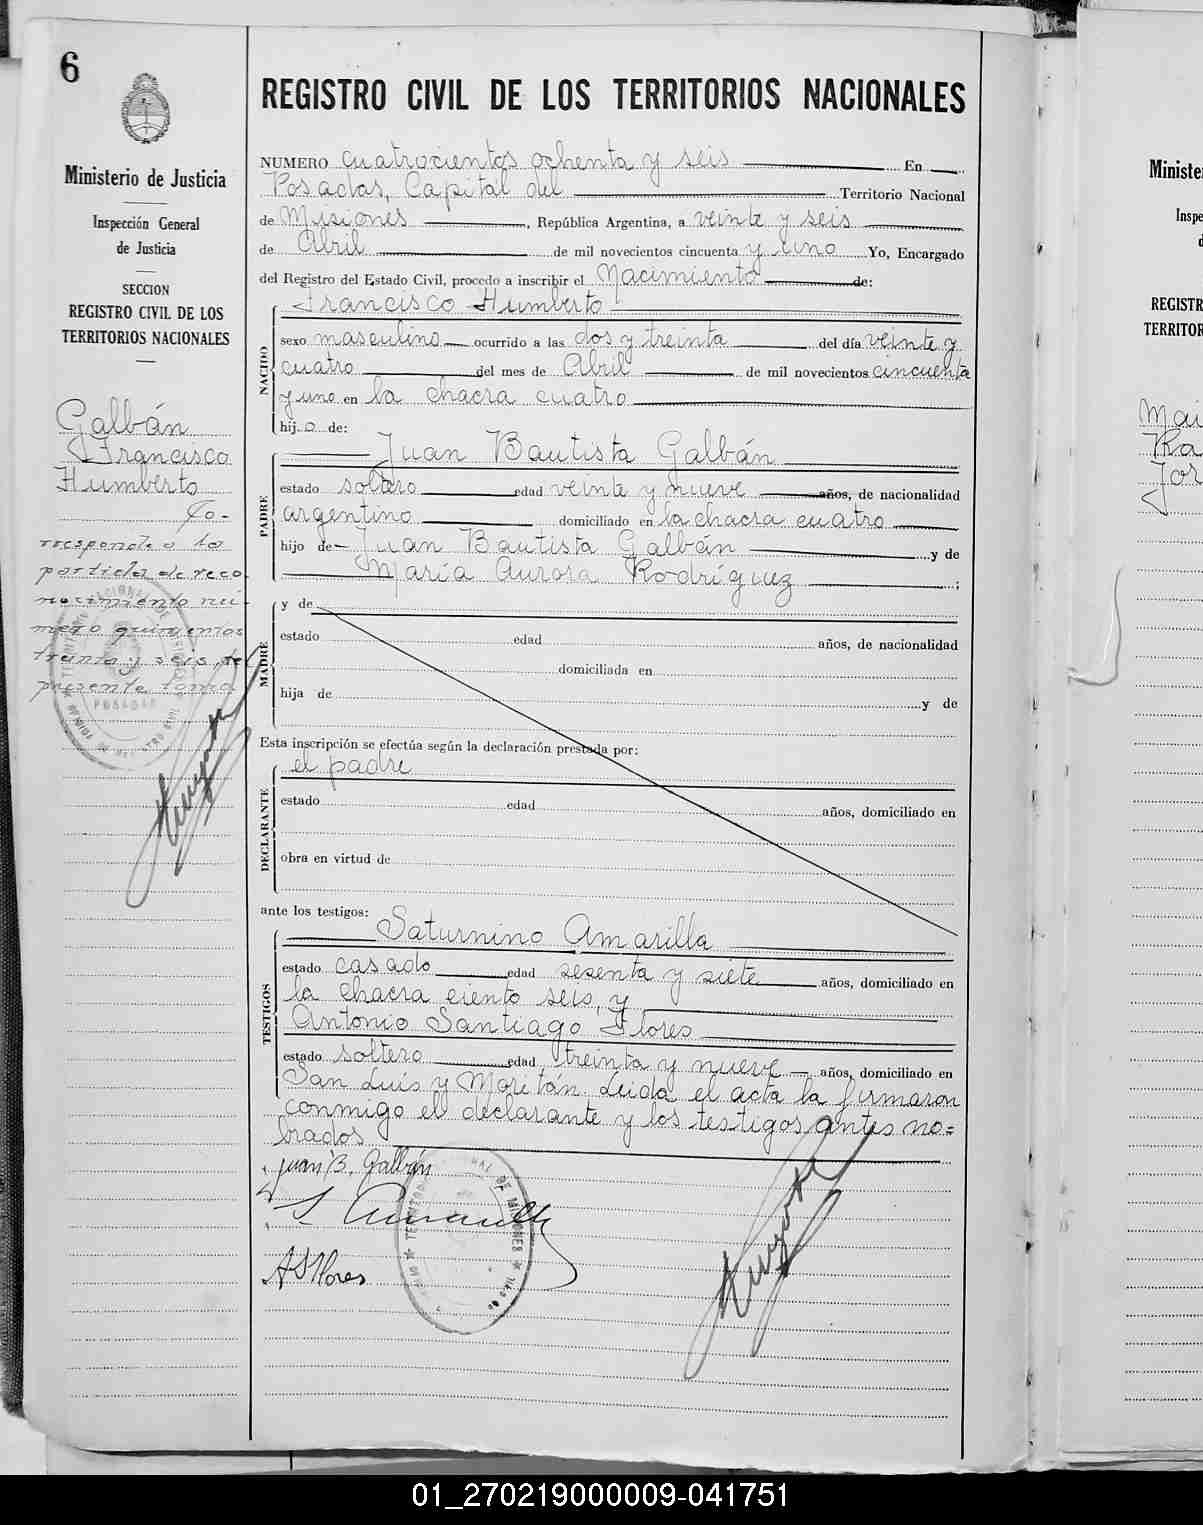 6
Ministerio de Justicia
Inspección General
de Justicia
SECCION
REGISTRO CIVIL DE LOS
TERRITORIOS NACIONALES
Galbán
Francisco
Humberto
Co-
rresponde a la
partida de reco-
nocimiento nú-
mero quinientos
treinta y seis, de
presente tomo
REGISTRO CIVIL DE LOS TERRITORIOS NACIONALES
NUMERO cuatrocientos ochenta y seis En
Posadas, Capital del Territorio Nacional
de Misiones, República Argentina, a veinte y seis
de Abril de mil novecientos cincuenta y uno Yo, Encargado
del Registro del Estado Civil, procedo a inscribir el Nacimiento de:
NACIDO
Francisco Humberto
sexo masculino ocurrido a las dos y treinta del día veinte y
cuatro del mes de Abril de mil novecientos cincuenta
y uno en la chacra cuatro
hijo de:
PADRE
Juan Bautista Galbán
estado soltero edad veinte y nueve años, de nacionalidad
argentino domiciliado en la chacra cuatro
hijo de Juan Bautista Galbán y de
María Aurora Rodríguez ;
MADRE
y de
estado edad años, de nacionalidad
domiciliada en
hija de y de
Esta inscripción se efectúa según la declaración prestada por:
DECLARANTE
el padre
estado edad años, domiciliado en
obra en virtud de
ante los testigos:
TESTIGOS
Saturnino Amarilla
estado casado edad sesenta y siete años, domiciliado en
la chacra ciento seis, y
Antonio Santiago Flores
estado soltero edad treinta y nueve años, domiciliado en
San Luis y Moritán. Leida el acta la firmaron
conmigo el declarante y los testigos antes no=
brados
Juan B. Galbán
S. Amarilla
A S Flores
Ministe
Inspe
d
REGISTR
TERRITOR
Mai
Ra
Jor
01_270219000009-041751